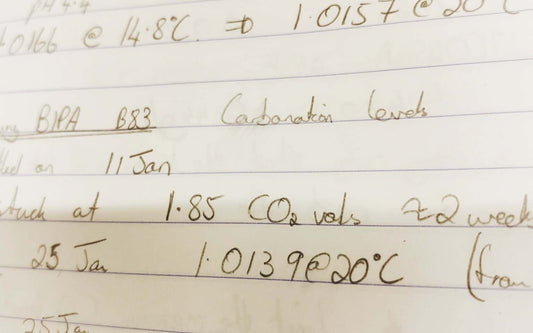 pH 4.4
.0166 @ 14.8°C. ⇒ 1.0157 @ 20°C
BIPA B83 Carbonation levels
on 11 Jan
at 1.85 CO₂ vols ≈2 week
25 Jan 1.0139@20°C (from
25 Jan